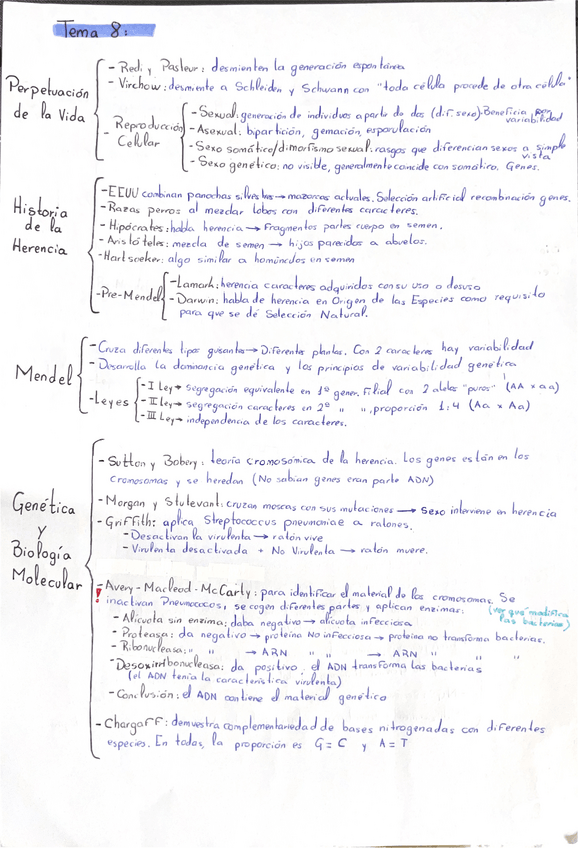 Tema 8:
Perpetuación de la Vida
- Redi y Pasteur: desmienten la generación espontánea
- Virchow: desmiente a Schleiden y Schwann con "toda célula procede de otra célula"
- Reproducción Celular
- Sexual: generación de individuos a parte de dos (dif. sexo). Beneficia por variabilidad
- Asexual: bipartición, gemación, esporulación
- Sexo somático/dimorfismo sexual: rasgos que diferencian sexos a simple vista
- Sexo genético: no visible, generalmente coincide con somático. Genes.
Historia de la Herencia
- EEUU combinan panochas silvestres → mazorcas actuales. Selección artificial recombinación genes.
- Razas perros al mezclar lobos con diferentes caracteres.
- Hipócrates: habla herencia → Fragmentos partes cuerpo en semen.
- Aristóteles: mezcla de semen → hijos parecidos a abuelos.
- Hartsoeker: algo similar a homúnculos en semen
- Pre-Mendel
- Lamark: herencia caracteres adquiridos con su uso o desuso
- Darwin: habla de herencia en Origen de las Especies como requisito
para que se dé Selección Natural.
Mendel
- Cruza diferentes tipos guisantes → Diferentes plantas. Con 2 caracteres hay variabilidad
- Desarrolla la dominancia genética y los principios de variabilidad genética
- Leyes
- I Ley → segregación equivalente en 1º gener. Filial con 2 alelos "puros" (AA x aa)
- II Ley → segregación caracteres en 2º " ", proporción 1:4 (Aa x Aa)
- III Ley → independencia de los caracteres.
Genética y Biología Molecular
- Sutton y Bobery: teoría cromosómica de la herencia. Los genes están en los
cromosomas y se heredan (No sabían genes eran parte ADN)
- Morgan y Stutevant: cruzan moscas con sus mutaciones → Sexo interviene en herencia
- Griffith: aplica Streptococcus pneumoniae a ratones.
- Desactivan la virulenta → ratón vive
- Virulenta desactivada + No Virulenta → ratón muere.
! - Avery-Macleod-McCarty: para identificar el material de los cromosomas. Se
inactivan Pneumococos, se cogen diferentes partes y aplican enzimas: (ver qué modifica las bacterias)
- Alícuota sin enzima: daba negativo → alícuota infecciosa
- Proteasa: da negativo → proteína No infecciosa → proteína no transforma bacterias.
- Ribonucleasa: " " → ARN " " → ARN " " "
- Desoxirribonucleasa: da positivo. el ADN transforma las bacterias
(el ADN tenía la característica virulenta)
- Conclusión: el ADN contiene el material genético
- Chargaff: demuestra complementariedad de bases nitrogenadas con diferentes
especies. En todas, la proporción es G = C y A = T